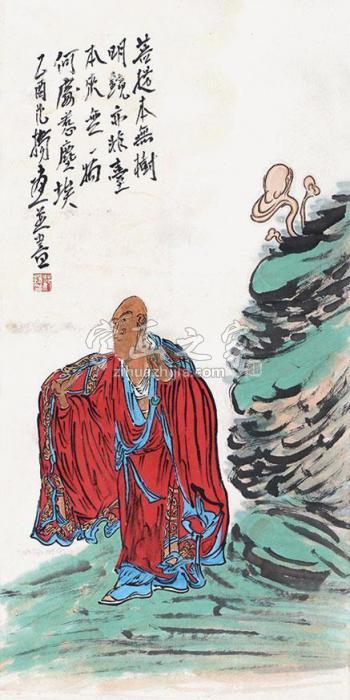 菩提本無樹
明鏡亦非臺
本來無一物
何處惹塵埃
乙酉范揚
字画之家
zihuazhijia.com